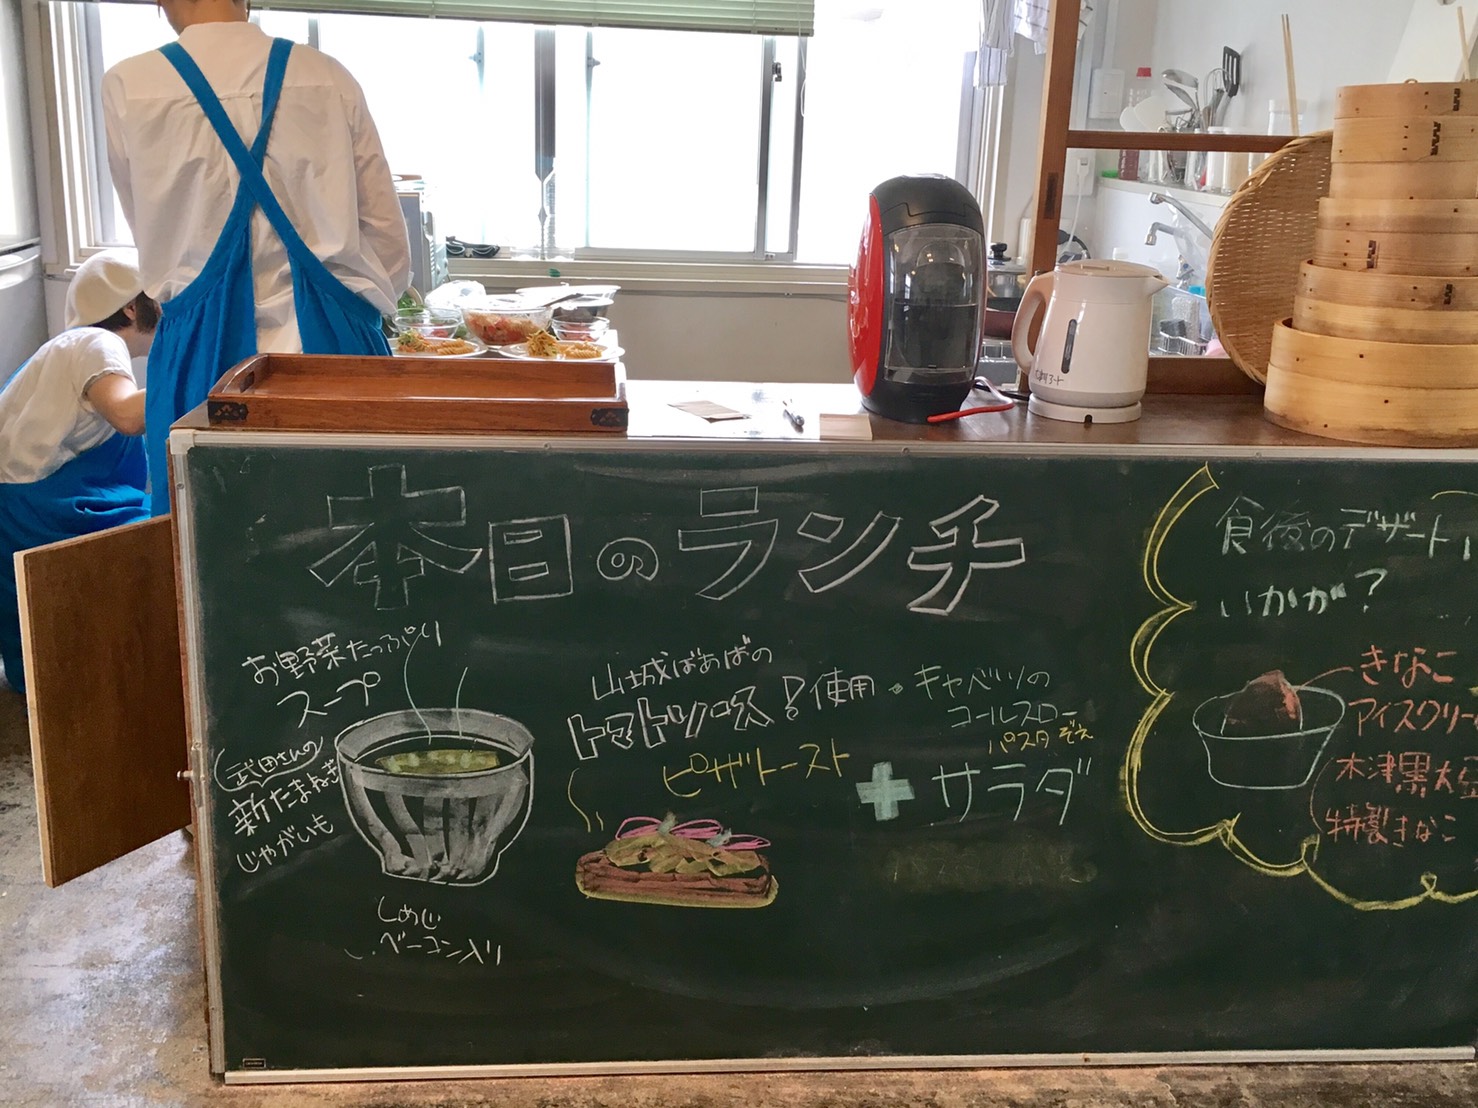 本日のランチ
お野菜たっぷり
スープ
武田さんの
新たまねぎ
じゃがいも
しめじ
ベーコン入り
山城ばあばの
トマトソース！使用
ピザトースト
キャベツの
コールスロー
パスタ ぞえ
サラダ
食後のデザート
いかが？
きなこ
アイスクリー
木津黒大豆
特製きなこ